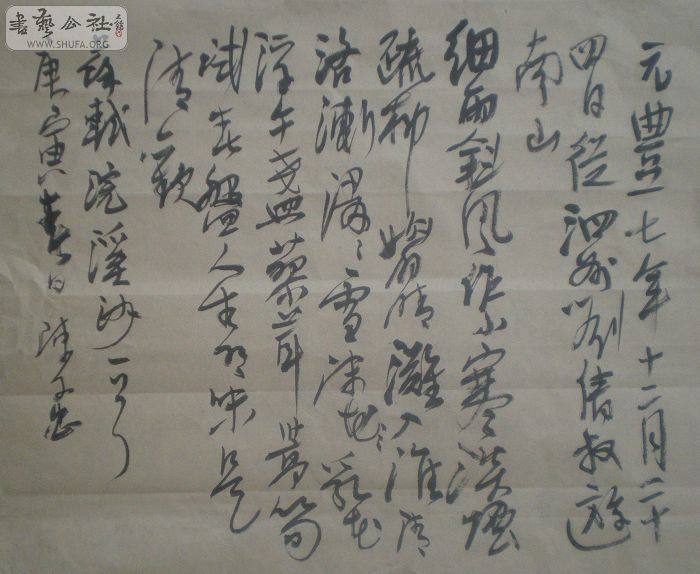 書藝公社
WWW.SHUFA.ORG
元豐七年十二月二十
四日從泗州劉倩叔遊
南山
細雨斜風作小寒淡煙
疏柳媚晴灘入淮清
洛漸漫〻雪沫花乳花
浮午盞蓼茸蒿筍
試春盤人生有味是
清歡
蘇軾浣溪沙一首
庚寅春日陳